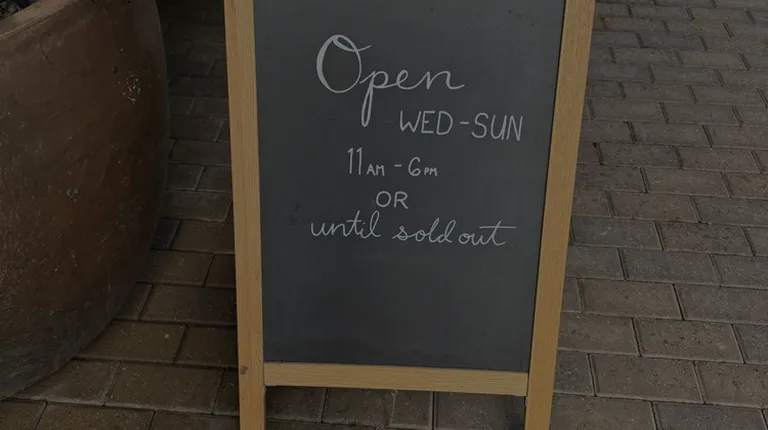 Open
WED-SUN
11AM-6PM
OR
until sold out